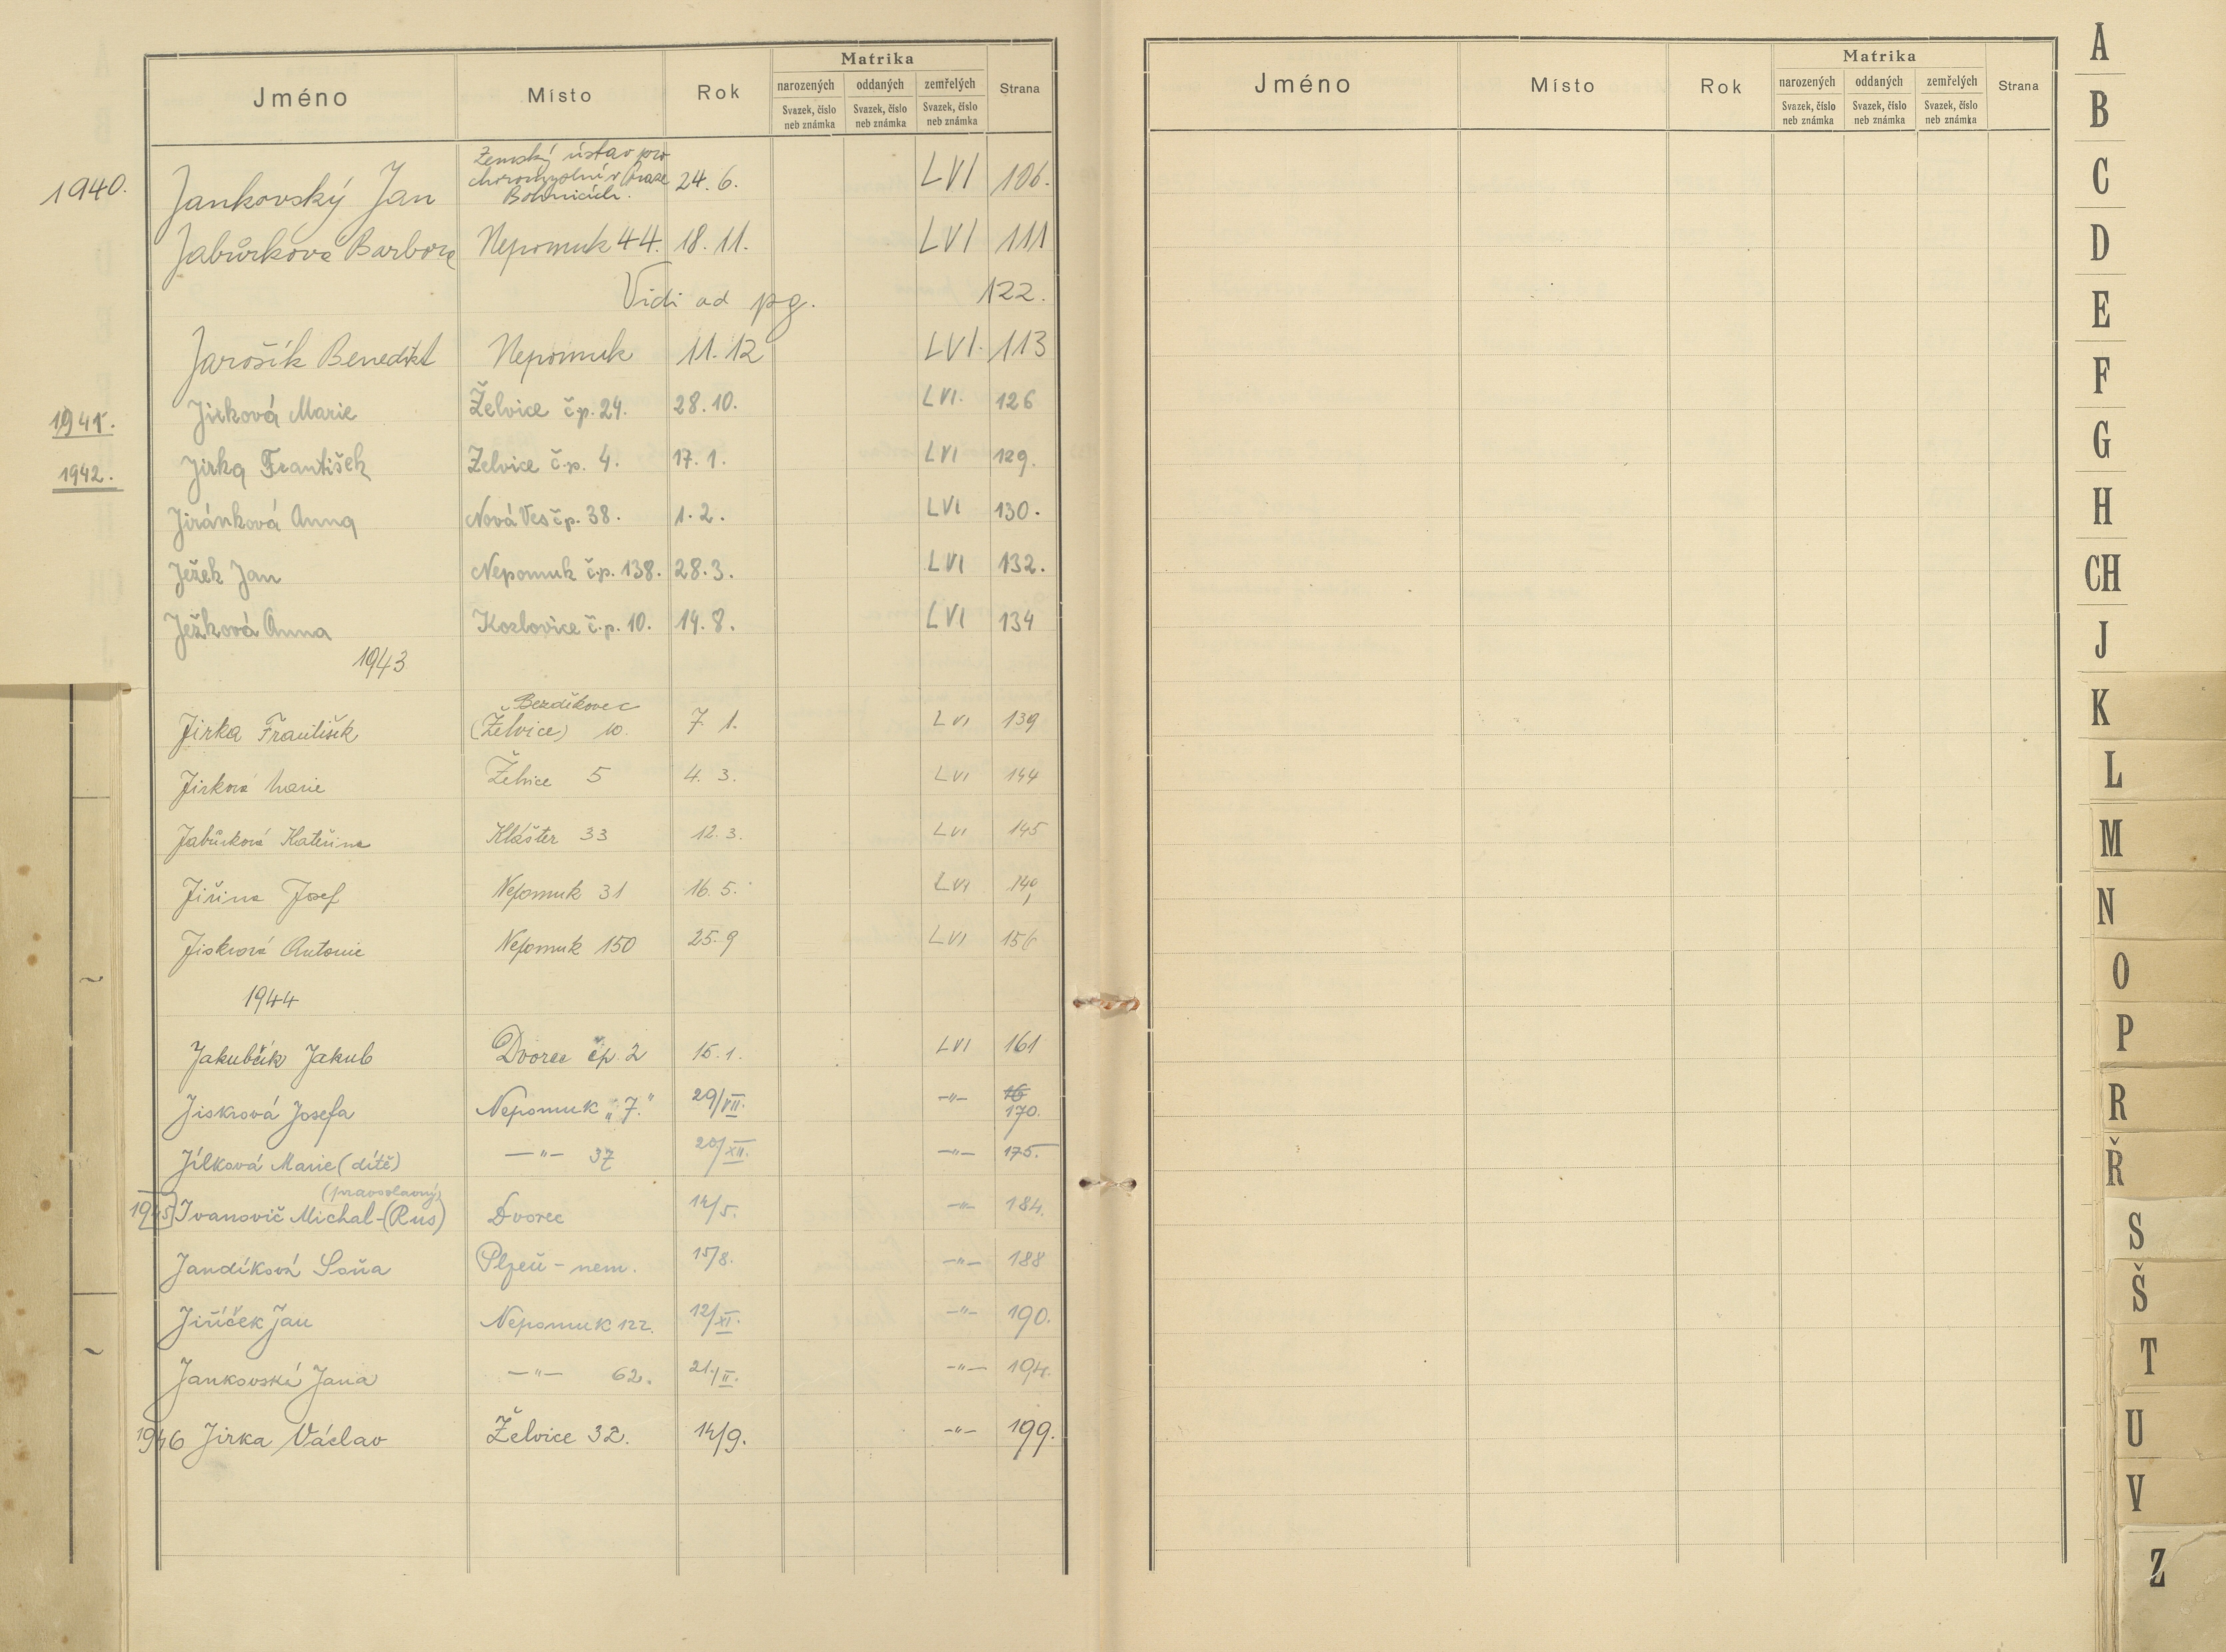 Jméno Místo Rok Matrika Strana
narozených oddaných zemřelých
Svazek, číslo neb známka Svazek, číslo neb známka Svazek, číslo neb známka
1940. Jankovský Jan Zemský ústav pro choromyslné v Praze Bohnicích. 24. 6. LVI 106.
Jabůrková Barbora Nepomuk 44. 18. 11. LVI 111
Vidi ad pg. 122.
Jarošík Benedikt Nepomuk 11. 12 LVI. 113
1941. Jirková Marie Želvice čp. 24. 28. 10. LVI. 126
1942. Jirka František Želvice č.p. 4. 17. 1. LVI 129.
Jiránková Anna Nová Ves čp. 38. 1. 2. LVI 130.
Ježek Jan Nepomuk č.p. 138. 28. 3. LVI 132.
Ježková Anna Kozlovice č.p. 10. 14. 8. LVI 134
1943
Jirka František Bezděkovec (Želvice) 10. 7. 1. LVI 139
Jirková Marie Želvice 5 4. 3. LVI 144
Jabůrková Kateřina Klášter 33 12. 3. LVI 145
Jiřina Josef Nepomuk 31 16. 5. LVI
Jiskrová Antonie Nepomuk 150 25. 9 LVI 156
1944
Jakubčík Jakub Dvorec čp. 2 15. 1. LVI 161
Jiskrová Josefa Nepomuk „7." 29/VII. -"- 16 170.
Jílková Marie (dítě) -"- 37 20/XII. -"- 175.
(pravoslavný)
1945 Ivanovič Michal - (Rus) Dvorec 14/5. -"- 184.
Jandíková Soňa Plzeň - nem. 15/8. -"- 188
Jiříček Jan Nepomuk 122. 12/XI. -"- 190.
Jankovská Jana -"- 62. 21./II. -"- 194.
1946 Jirka Václav Želvice 32. 14/9. -"- 199.
Jméno Místo Rok Matrika Strana
narozených oddaných zemřelých
Svazek, číslo neb známka Svazek, číslo neb známka Svazek, číslo neb známka
A
B
C
D
E
F
G
H
CH
J
K
L
M
N
O
P
R
Ř
S
Š
T
U
V
Z